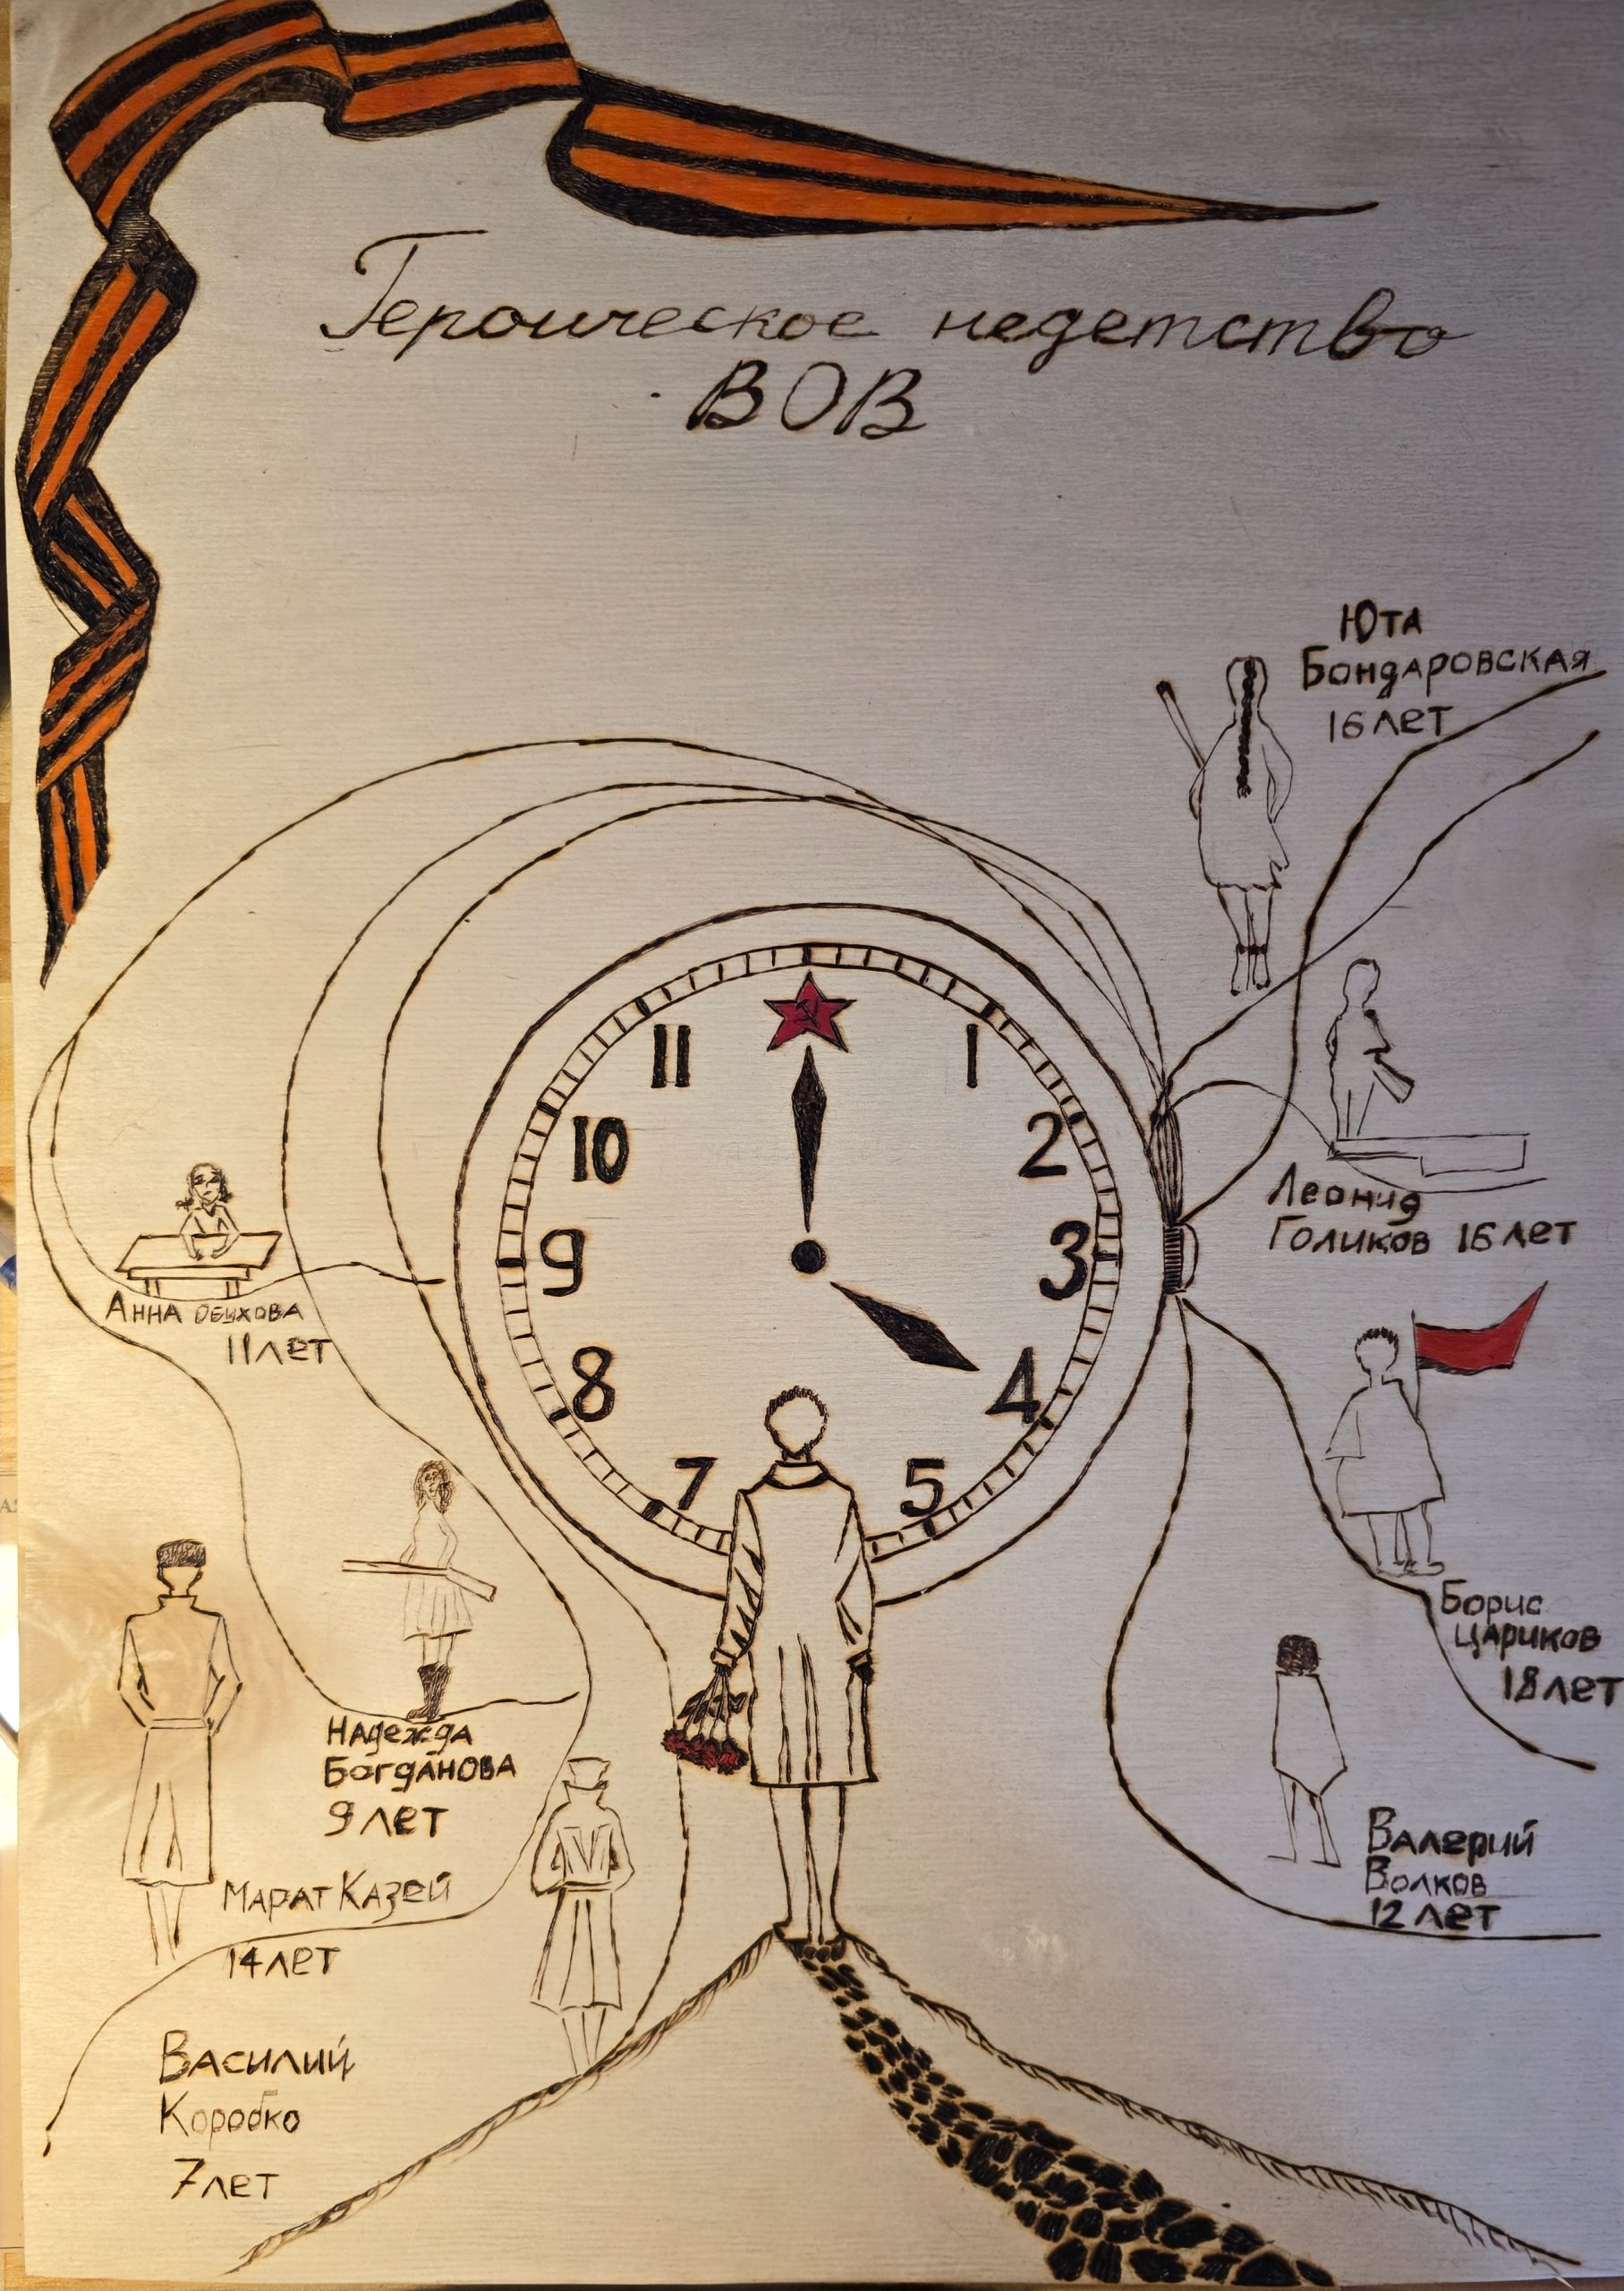 Героическое недетство
ВОВ
Юта
Бондаровская
16 лет
11
1
10
2
9
3
8
4
7
5
Леонид
Голиков 16 лет
Анна Обухова
11 лет
Борис
Цариков
18 лет
Надежда
Богданова
9 лет
Марат Казей
14 лет
Валерий
Волков
12 лет
Василий
Коробко
7 лет